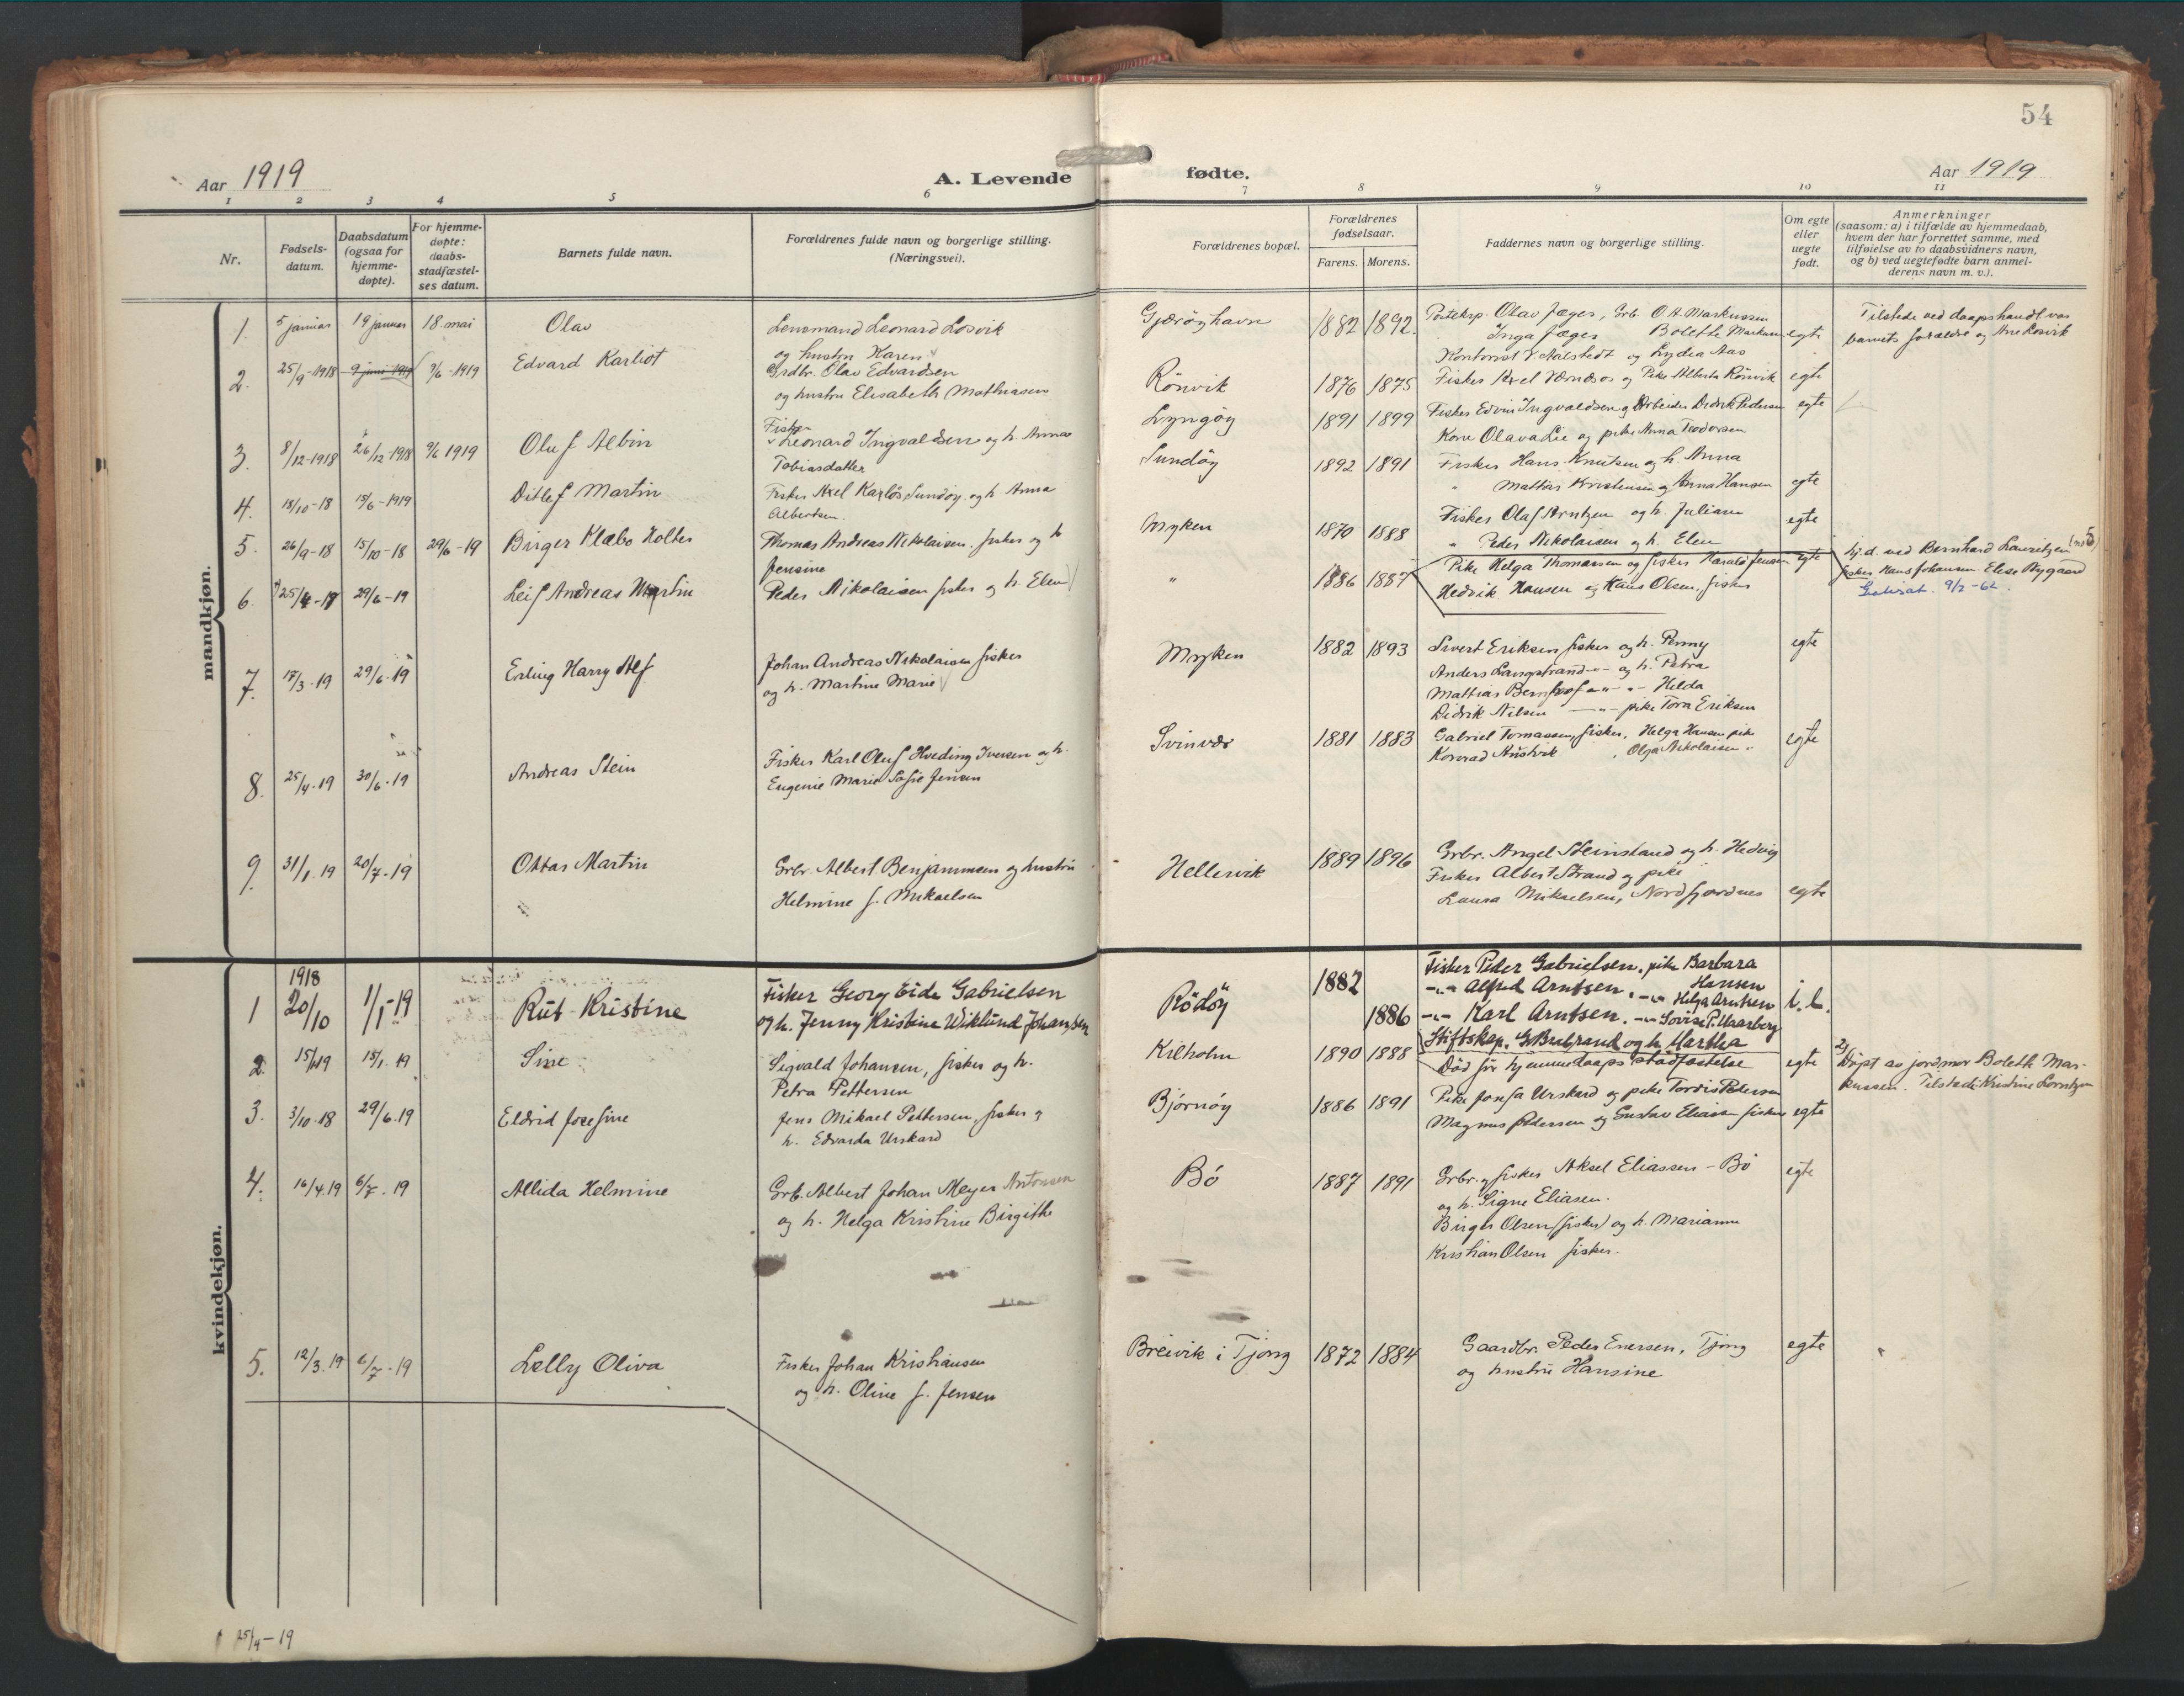 54
Aar 1919
A. Levende fødte.
Aar 1919
1 2 3 4 5 6 7 8 9 10 11
Nr.
Fødsels-
datum.
Daabsdatum
(ogsaa for
hjemme-
døpte).
For hjemme-
døpte:
daabs-
stadfæstel-
ses datum.
Barnets fulde navn.
Forældrenes fulde navn og borgerlige stilling.
(Næringsvei).
Forældrenes bopæl.
Forældrenes
fødselsaar.
Farens. Morens.
Faddernes navn og borgerlige stilling.
Om egte
eller
uegte
født.
Anmerkninger
(saasom: a) i tilfælde av hjemmedaab,
hvem der har forrettet samme, med
tilføielse av to daabsvidners navn,
og b) ved uegtefødte barn anmel-
derens navn m. v.).
mandkjøn.
1. 5 januar 19 januar 18. mai Olav
Lensmand Leonard Losvik
og hustru Karen
Gjærøyhavn 1882 1892.
Posteksp. Olav Jæger, Grb. O. A. Markussen
Inga Jæger Bolethe Markussen egte
Kontorist Aalstedt og Lydia Aas
Tilstede ved daapshandl. var
barnets forældre og Losvik
2. 25/9-1918 9 juni 1919 9/6-1919 Edvard Karliot
Grdbr. Olav Edvardsen
og hustru Elisabeth Mathiasen
Rönvik 1876 1875
Fisker Axel og Pike Alberta Rönvik egte
3. 8/12-1918 26/12-1918 9/6 1919 Oluf Albin
Fisker
Leonard Ingvaldsen og h. Anna
Tobiasdatter
Lyngöy 1891 1899
Fisker Edvin Ingvaldsen og Arbeider Didrik Pedersen egte
Kone Olava Lie og pike Anna Teodorsen
4. 18/10-18 15/6-1919 Ditlef Martin
Fisker Axel Karlös, Sundöy. og h. Anna
Albertsen.
Sundöy 1892 1891
Fisker Hans Knutsen og h. Anna
" Mattias Kristensen og Anna Hansen egte
5. 26/9-18 15/10-18 29/6-19 Birger Klæbo Holter
Thomas Andreas Nikolaisen. fisker og h
Jensine
Myken 1870 1888
Fisker Olaf Arntzen og h. Juliane egte
" Peder Nikolaisen og h. Elen
hj.d. ved Bernhard Lauritzen (no 5)
fisker Hans Johansen. Elise Nygaard
6. 25/4-19 29/6-19 Leif Andreas Martin
Peder Nikolaisen fisker og h. Elen
" 1886 1887
Pike Helga Thomassen og fisker Harald Jensen egte
Hedvik Hansen og Hans Olsen, fisker
9/2-62.
7. 17/3-19 29/6-19 Erling Harry Alf
Johan Andreas Nikolaisen fisker
og h. Martine Marie
Myken 1882 1893
Sivert Eriksen fisker og h. Penny egte
Anders Langstrand -"- og h. Petra
Mattias Bernhof -"- -"- Hilda
Didrik Nilsen -"- pike Tora Eriksen
8. 25/4-19 30/6-19 Andreas Stein
Fisker Karl Oluf Hveding Iversen og h.
Eugenie Marie Sofie Jensen
Svinvær 1881 1883
Gabriel Tomassen, fisker, Helga Hansen pike egte
Konrad , Olga Nikolaisen "
9. 31/1.19 20/7-19 Ottar Martin
Grbr. Albert Benjaminsen og hustru
Helmine f. Mikaelsen
Hellervik 1889 1896
Grbr. Angel Steinstand og h. Hedvig
Fisker Albert Strand og pike
Laura Mikaelsen, Nordfjordnes egte
kvindekjøn.
1 1918 20/10 1/1-19 Rut Kristine
Fisker Georg Eide Gabrielsen
og h. Jenny Kristine Wiklund Johansen
Rödöy 1882 1886
Fisker Peder Gabrielsen, pike Barbara
Hansen
-"- Alfred Arntsen. -"- Helga Arntsen
-"- Karl Arntsen. -"- Lovise P. Maarberg
Stiftskap. G. Bulbrand og h. Martha
2. 15/1 19 15/1.19 Sine
Sigvald Johansen, fisker og h.
Petra Pettersen
Kilholm 1890 1888
Död för hjemmedaaps stadfæstelse egte
2) Döpt av jordmor Boleth Mar-
kussen. Tilstede: Kristine Lorntzen
3. 3/10-18 29/6.19 Eldrid Josefine
Jens Mikael Pettersen, fisker og
h. Edvarda Urskard
Björnöy 1886 1891
Pike Josefa Urskard og pike Tordis Pedersen
Magnus Pedersen og Gustav Eliassen fiskere egte
4. 16/4.19 6/7.19 Allida Helmine
Grb. Albert Johan Meyer Antonsen
og h. Helga Kristine Birgithe
Bö 1887 1891
Grbr. og fisker Aksel Eliassen - Bö egte
og h. Signe Eliasen.
Birger Olsen (fisker) og h. Marianne
Kristian Olsen fisker.
5. 12/3.19 6/7-19 Lelly Oliva
Fisker Johan Kristiansen
og h. Oline f. Jensen
Breivik i Tjong 1872 1884
Gaardbr. Peder Enersen, Tjong egte
og hustru Hansine
25/4-19